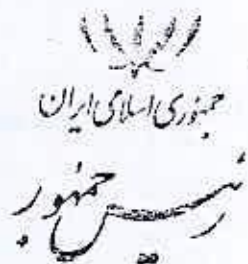 جمهوری اسلامی ایران
رئیس جمهور